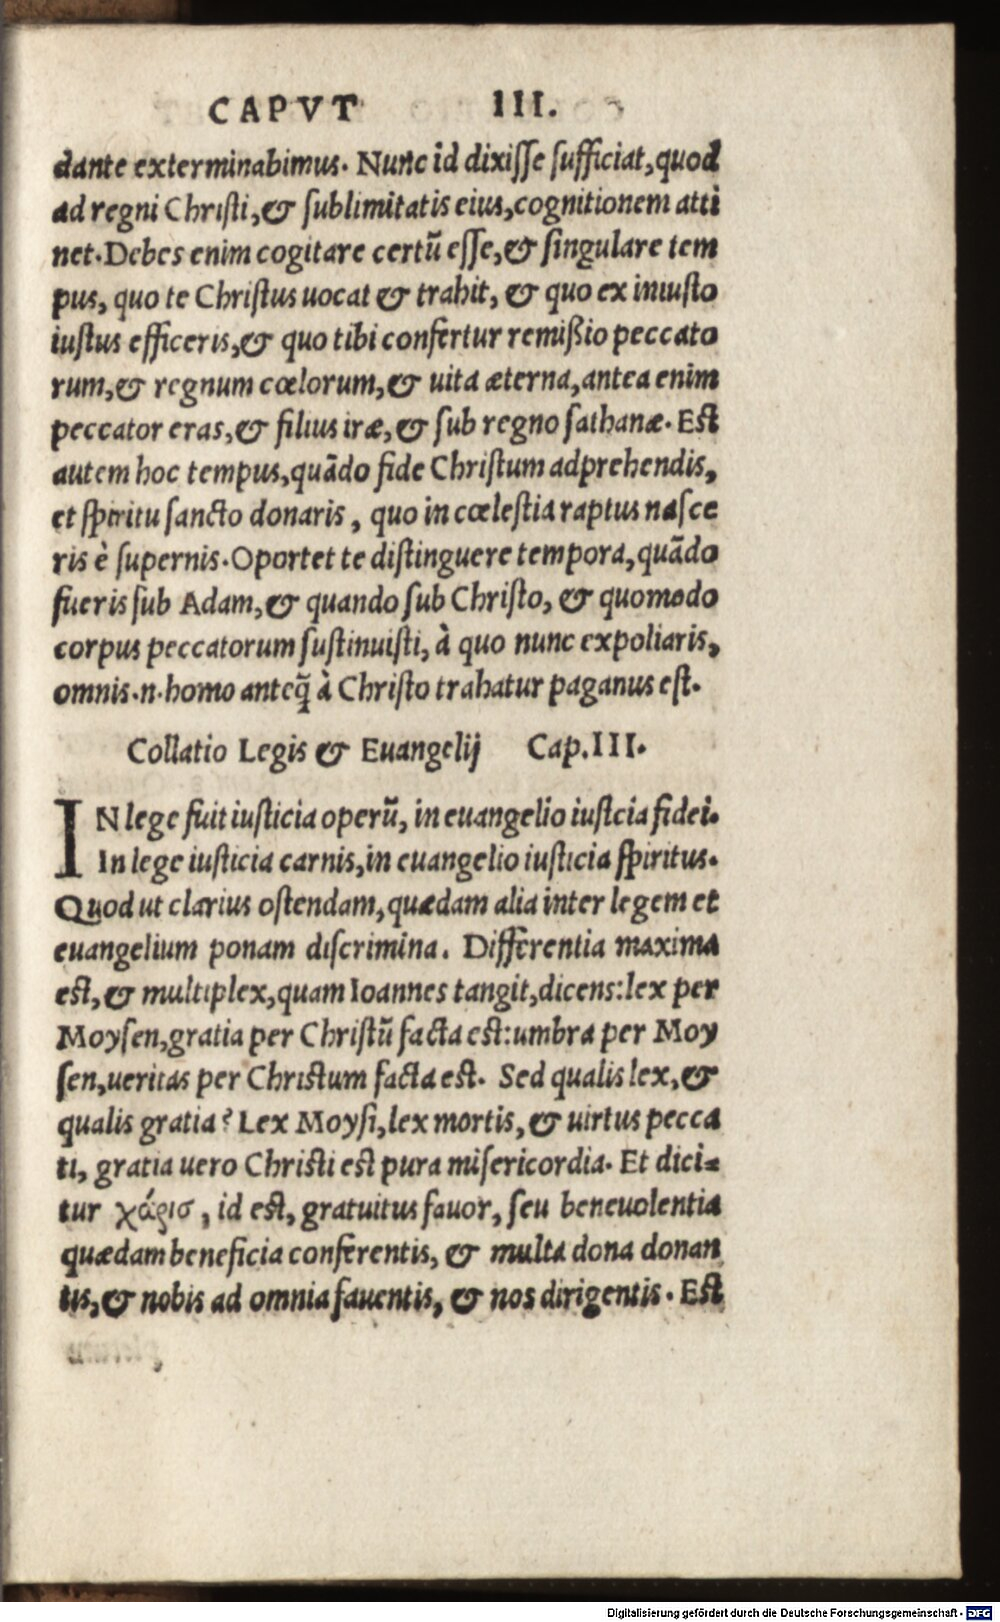 CAPVT III.
dante exterminabimus. Nunc id dixisse sufficiat, quod
ad regni Christi, & sublimitatis eius, cognitionem atti
net. Debes enim cogitare certũ esse, & singulare tem
pus, quo te Christus uocat & trahit, & quo ex iniusto
iustus efficeris, & quo tibi confertur remißio peccato
rum, & regnum cœlorum, & uita æterna, antea enim
peccator eras, & filius iræ, & sub regno sathanæ. Est
autem hoc tempus, quãdo fide Christum adprehendis,
et spiritu sancto donaris, quo in cœlestia raptus nasce
ris è supernis. Oportet te distinguere tempora, quãdo
fueris sub Adam, & quando sub Christo, & quomodo
corpus peccatorum sustinuisti, à quo nunc expoliaris,
omnis .n. homo anteq̃ à Christo trahatur paganus est.
Collatio Legis & Euangelij Cap. III.
IN lege fuit iusticia operũ, in euangelio iustcia fidei.
In lege iusticia carnis, in euangelio iusticia spiritus.
Quod ut clarius ostendam, quædam alia inter legem et
euangelium ponam discrimina. Differentia maxima
est, & multiplex, quam Ioannes tangit, dicens: lex per
Moysen, gratia per Christũ facta est: umbra per Moy
sen, ueritas per Christum facta est. Sed qualis lex, &
qualis gratia? Lex Moysi, lex mortis, & uirtus pecca
ti, gratia uero Christi est pura misericordia. Et dici=
tur χάρισ, id est, gratuitus fauor, seu beneuolentia
quædam beneficia conferentis, & multa dona donan
tis, & nobis ad omnia fauentis, & nos dirigentis. Est
Digitalisierung gefördert durch die Deutsche Forschungsgemeinschaft - DFG